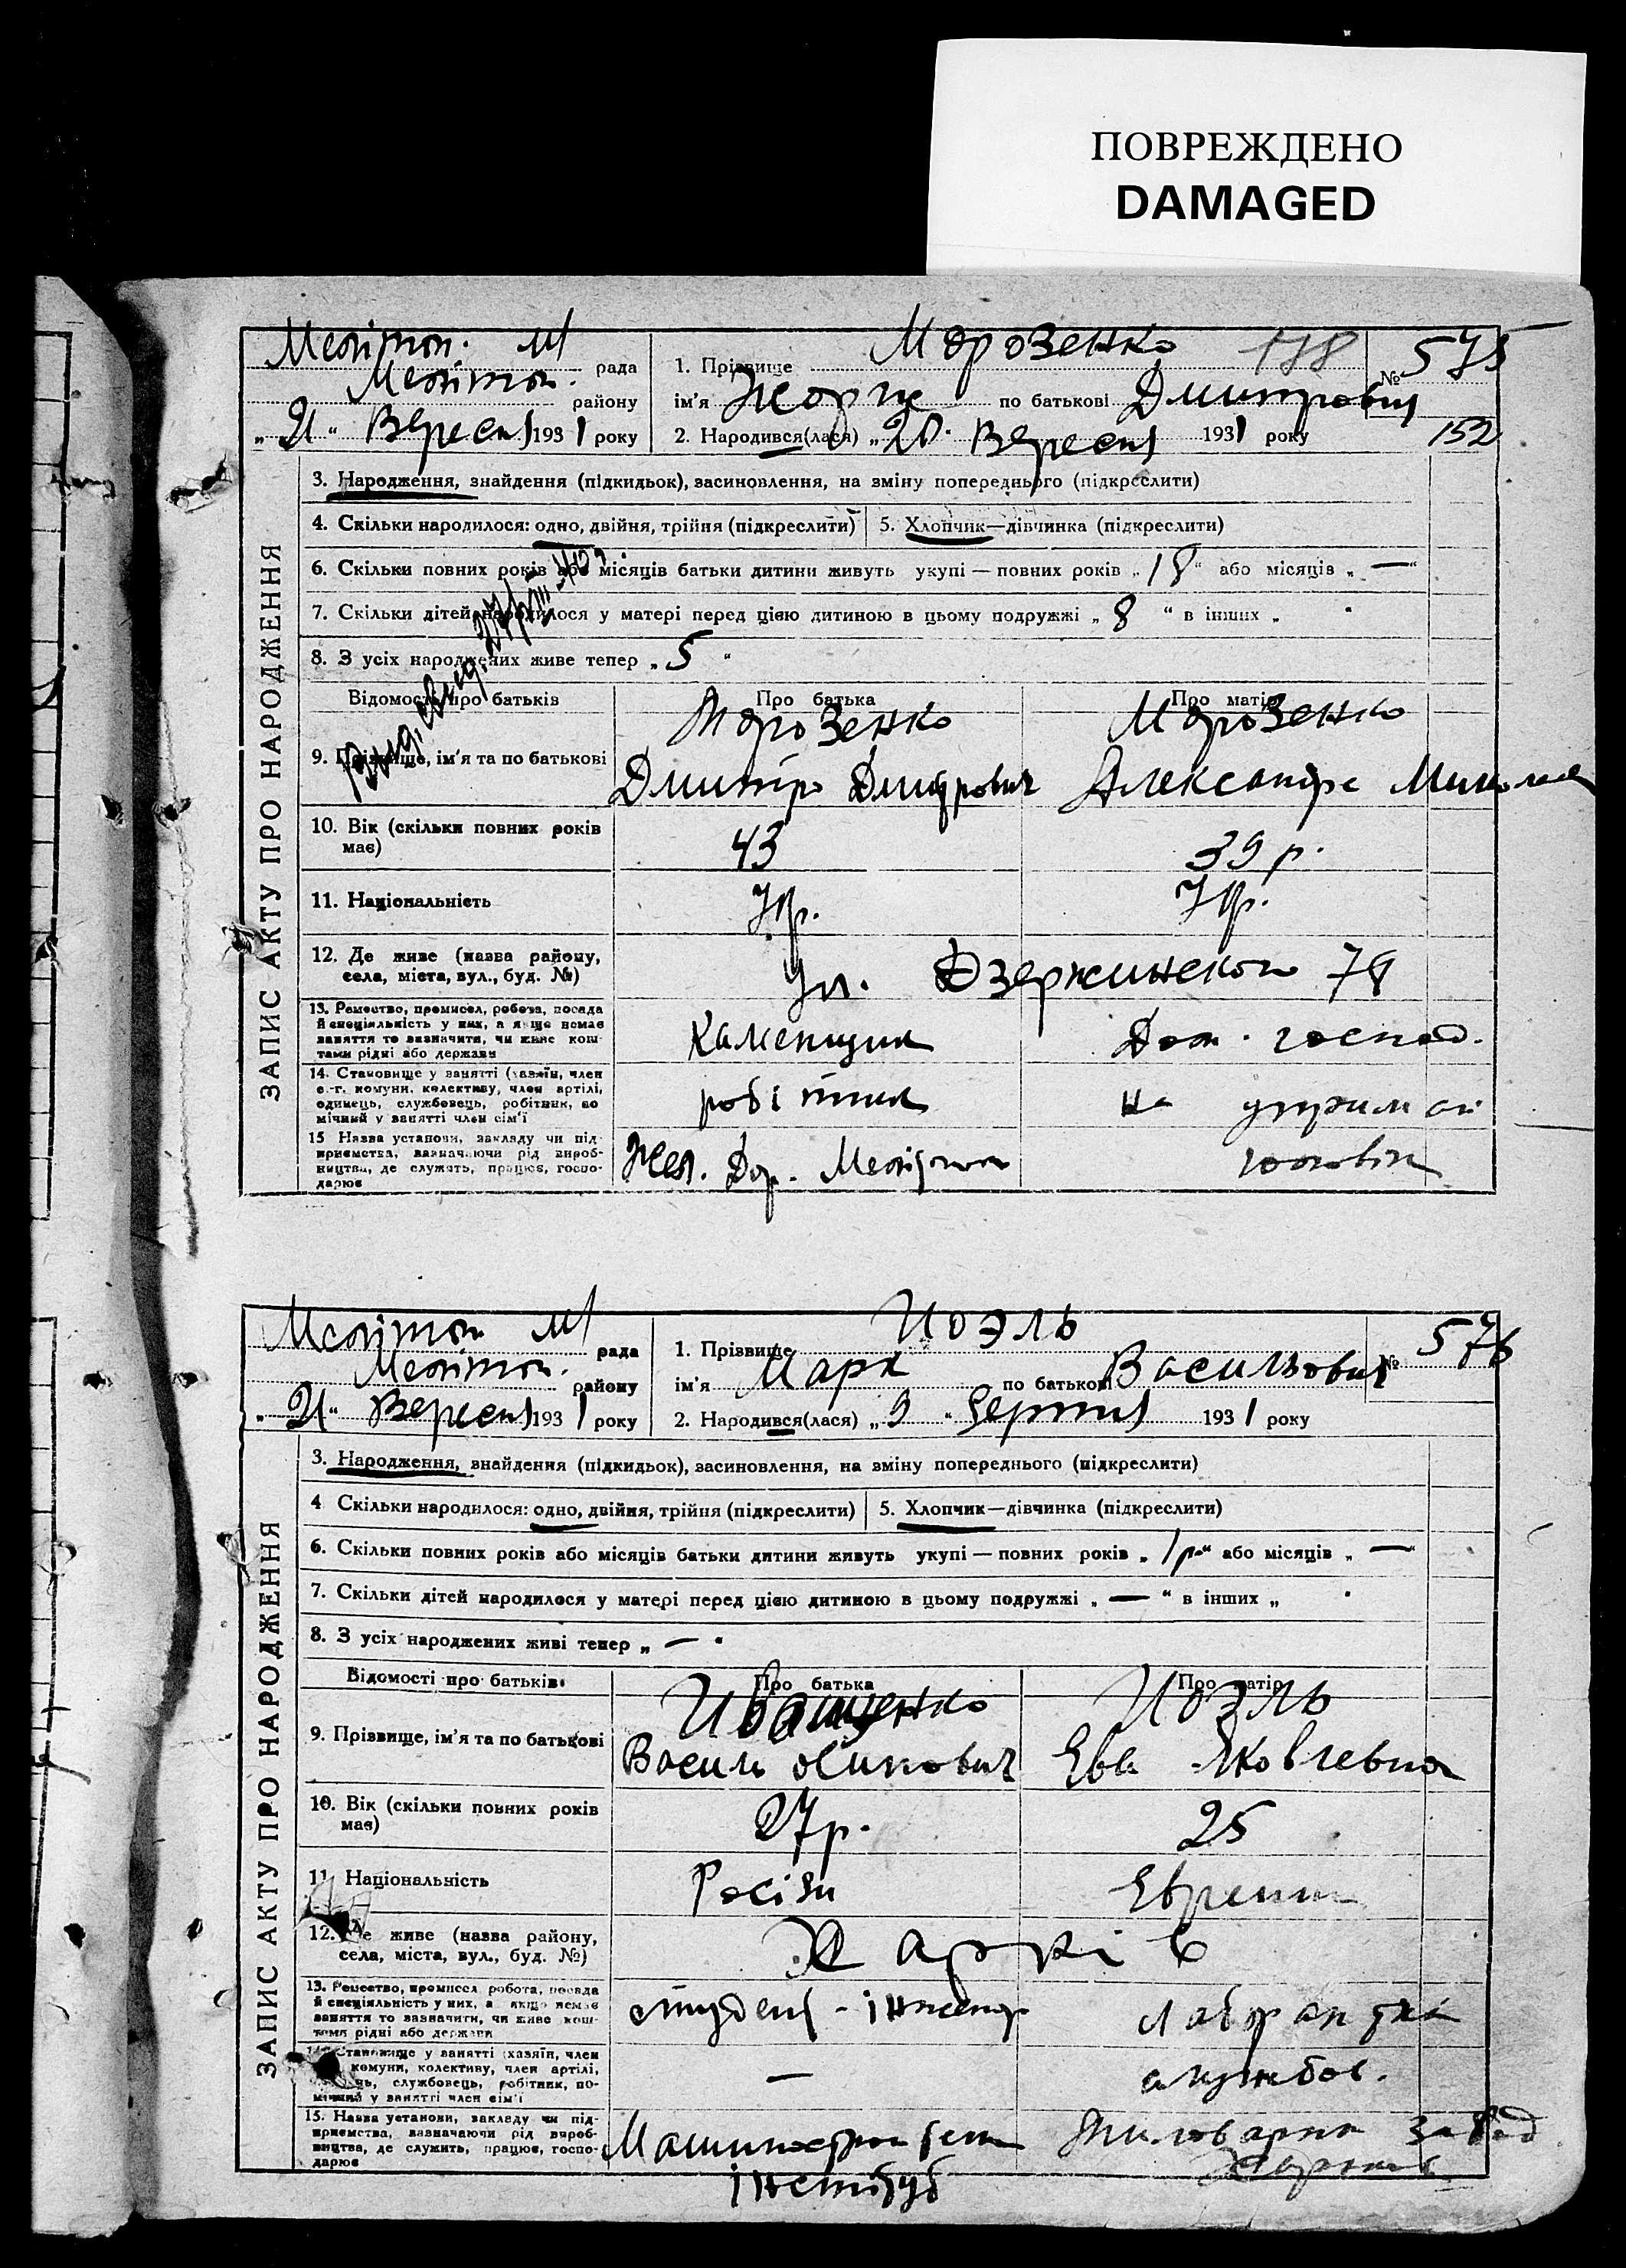 ПОВРЕЖДЕНО
DAMAGED
Мелітоп. М
рада
Мелітоп.
району
„ 21 “ Вересня 1931 року
1. Прізвище Морозенко 178
№ 575
ім'я Жорж по батькові Дмитрович
2. Народився(лася) „ 20 “ Вересня 1931 року
152
ЗАПИС АКТУ ПРО НАРОДЖЕННЯ
3. Народження, знайдення (підкидьок), засиновлення, на зміну попереднього (підкреслити)
4. Скільки народилося: одно, двійня, трійня (підкреслити) 5. Хлопчик—дівчинка (підкреслити)
6. Скільки повних років або місяців батьки дитини живуть укупі — повних років „ 18 “ або місяців „ — “
7. Скільки дітей народилося у матері перед цією дитиною в цьому подружжі „ 8 “ в інших „
8. З усіх народжених живе тепер „ 5 “
Відомості про батьків Про батька Про матір
Морозенко Морозенко
9. Прізвище, ім'я та по батькові
Дмитро Дмитрович Александра
10. Вік (скільки повних років має) 43 39 р.
11. Національність Укр. Укр.
12. Де живе (назва району, села, міста, вул., буд. №) Ул. Дзержинского 78
13. Ремество, промисел, робота, посада й спеціяльність у них, а якще немає заняття то зазначити, чи живе коштами рідні або держави
Каменщик Дом. господ.
14. Становище у занятті (хазяїн, член с.-г. комуни, колективу, член артілі, одинець, службовець, робітник, помічний у занятті член сім'ї
робітник на утриман
15 Назва установи, закладу чи підприємства, зазначаючи рід виробництва, де служить, працює, господарює
Жел. Дор. Мелітополь чоловік
Мелітоп М
рада
Мелітоп.
району
„ 21 “ Вересня 1931 року
1. Прізвище Иоэль
№ 576
ім'я Марк по батькові Васильович
2. Народився(лася) „ 9 “ Серпня 1931 року
ЗАПИС АКТУ ПРО НАРОДЖЕННЯ
3. Народження, знайдення (підкидьок), засиновлення, на зміну попереднього (підкреслити)
4 Скільки народилося: одно, двійня, трійня (підкреслити) 5. Хлопчик—дівчинка (підкреслити)
6. Скільки повних років або місяців батьки дитини живуть укупі — повних років „ 1 р. “ або місяців „ — “
7. Скільки дітей народилося у матері перед цією дитиною в цьому подружжі „ — “ в інших „
8. З усіх народжених живі тепер „ —
Відомості про батьків Про батька Про матір
Иващенко Иоэль
9. Прізвище, ім'я та по батькові
Василь Ева Яковлевна
10. Вік (скільки повних років має) 27 р. 25
11. Національність Росіян Евреит
12. Де живе (назва району, села, міста, вул., буд. №) Харків
13. Ремество, промисел, робота, посада й спеціяльність у них, а якщо немає заняття то зазначити, чи живе коштами рідні або держави
студент - інженер лаборантка
14. Становище у занятті (хазяїн, член комуни, колективу, член артілі, службовець, робітник, помічний у занятті член сім'ї
— службов.
15. Назва установи, закладу чи підприємства, зазначаючи рід виробництва, де служить, працює, господарює
Машиностроітель Миловарни завод
інститут Харков